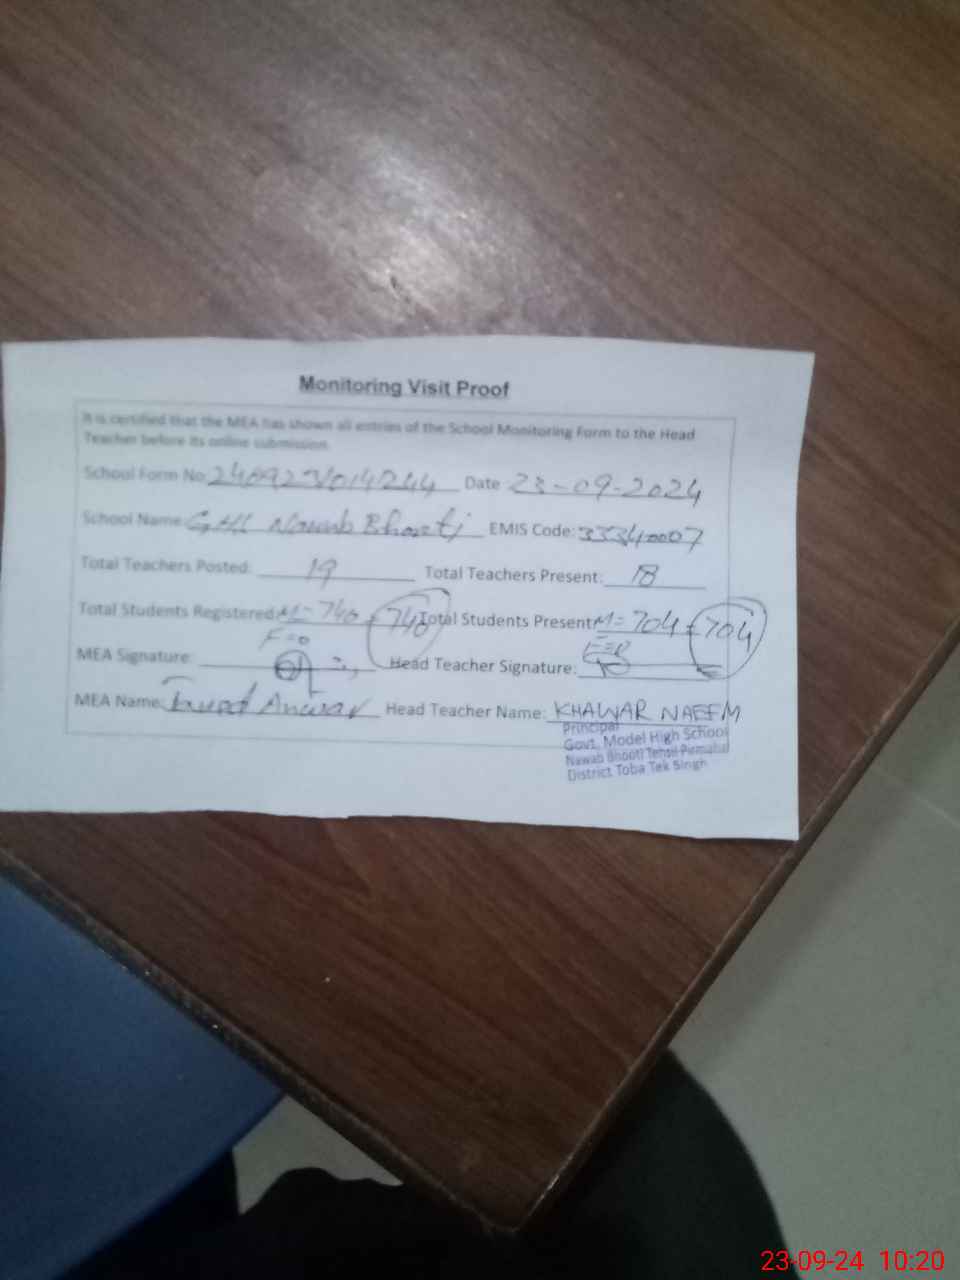 Monitoring Visit Proof
It is certified that the MEA has shown all entries of the School Monitoring Form to the Head
Teacher before its online submission.
School Form No: Date 23-09-2024
School Name: Nawab Bhooti EMIS Code: 33340007
Total Teachers Posted: 19 Total Teachers Present: 18
Total Students Registered: M=740 740 Total Students Present: M=704 704
F=0 F=0
MEA Signature: Head Teacher Signature:
MEA Name: Anwar Head Teacher Name: KHAWAR NAEEM
Principal
Govt. Model High School
Nawab Bhooti Tehsil Pirmahal
District Toba Tek Singh
23-09-24 10:20